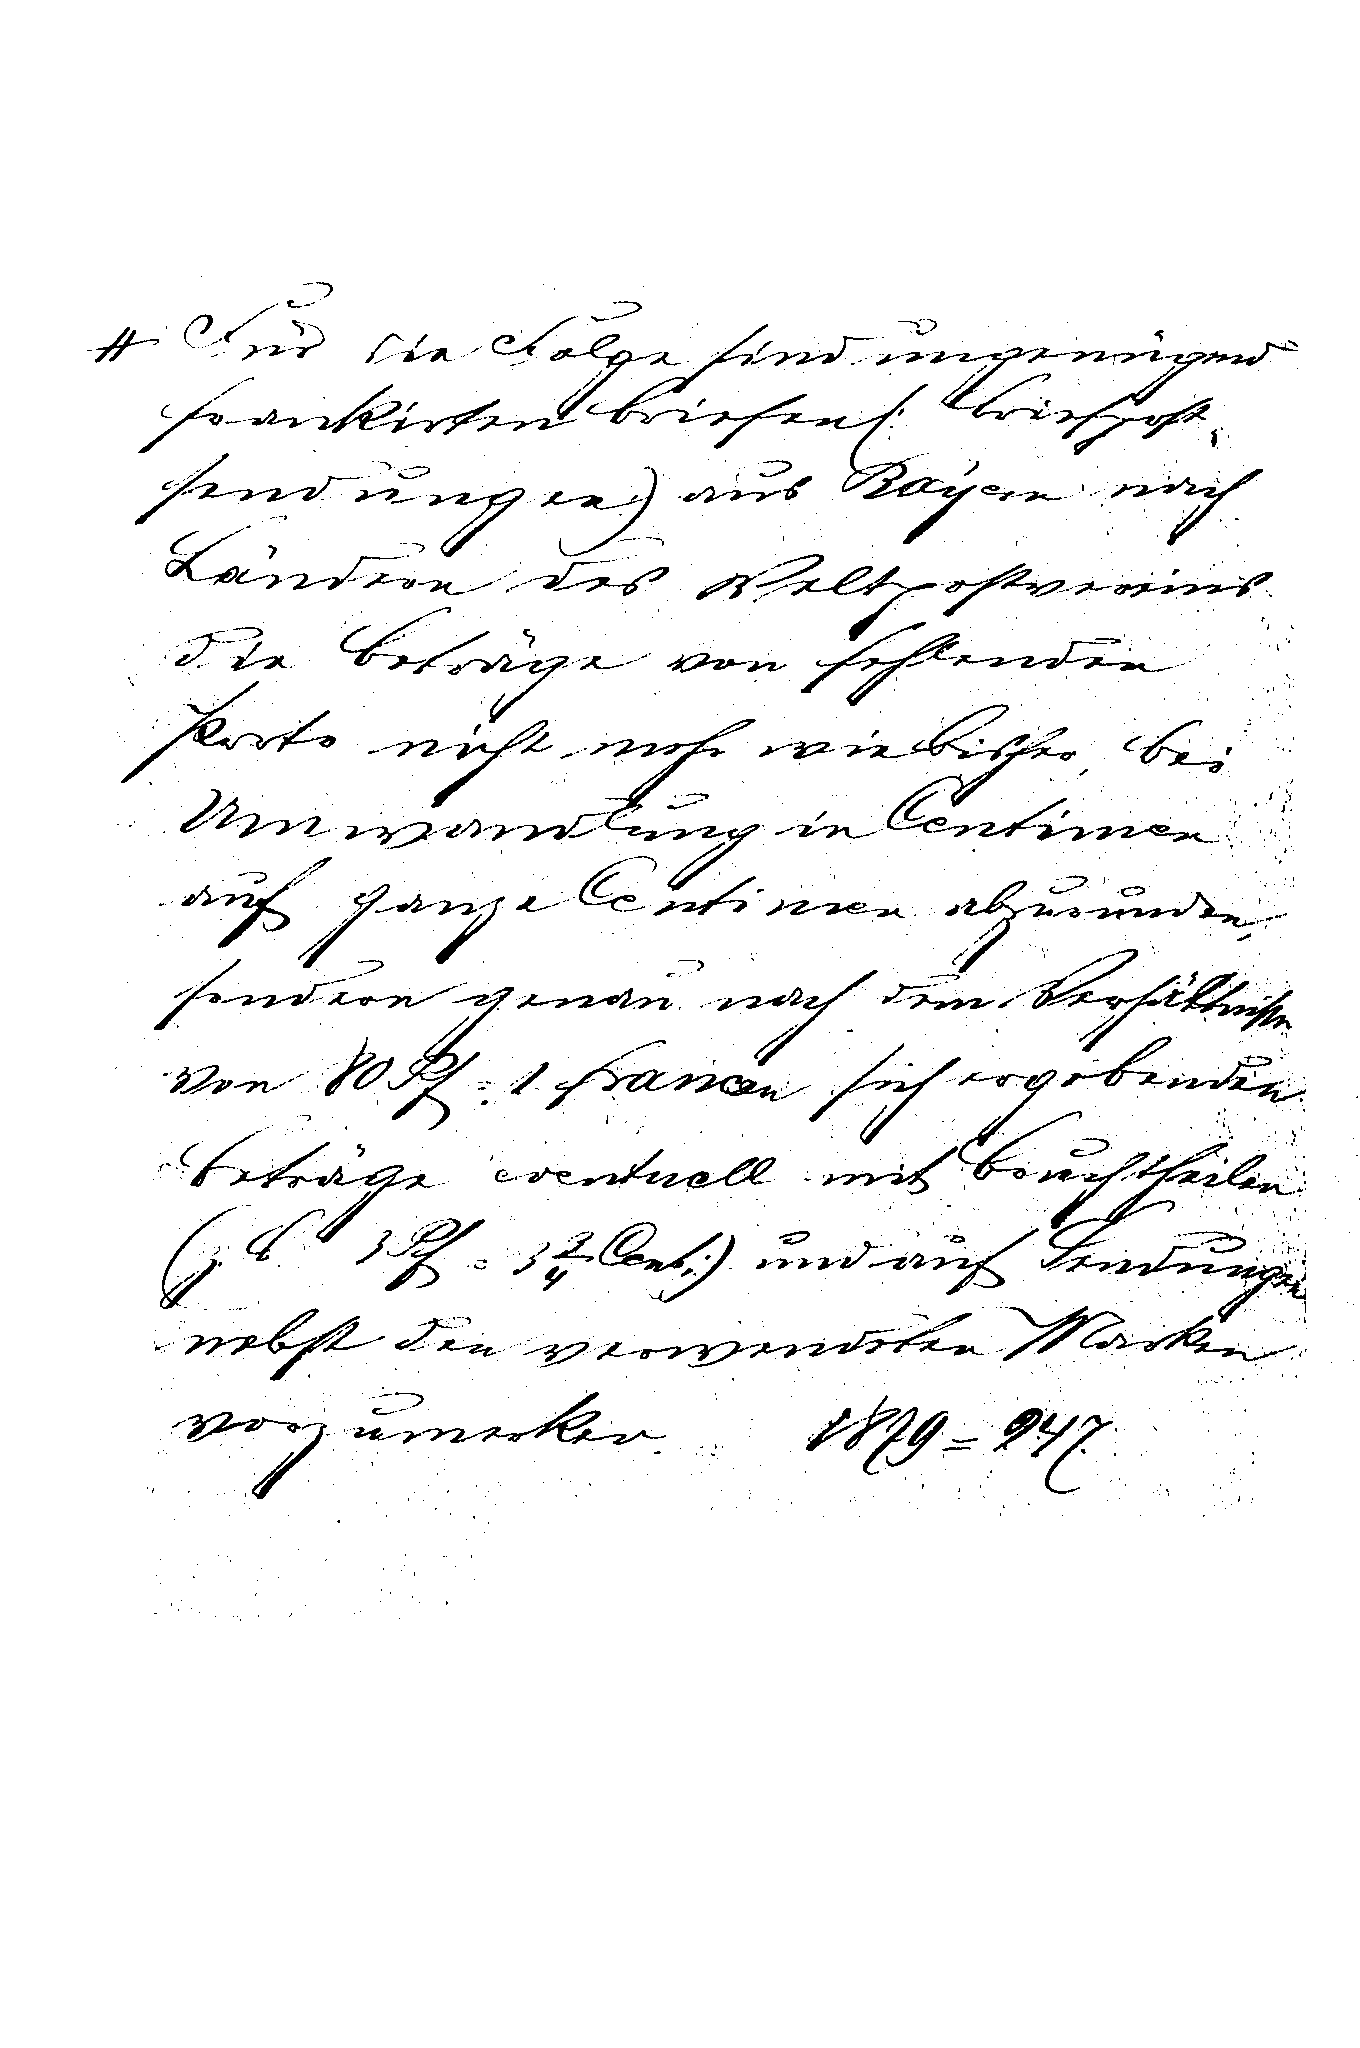 # Für die Folge sind ungenügend
frankirten Briefen (: Briefpost,
sendungen) aus Bayern nach
Ländern des Weltpostvereins
die Beträge von fehlenden
Porto nicht mehr wie bisher, bei
Umwandlung in Centimen
auf ganze Centimen abzurunden,
sondern genau nach dem Verhältnisse
von 80 Pf = 1 Francen sich ergebenden
Beträge eventuell mit Bruchtheilen
(z B 3 Pf = 3 3/4 Cent:) und auf Sendungen
nebst den verwendeten Marken
vorzumerken. 1879 = 247.